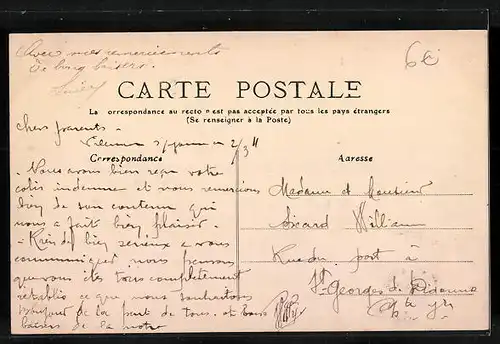 Avec mes remerciements
de cinq baisers.
6€
CARTE POSTALE
La correspondance au recto n'est pas acceptée par tous les pays étrangers
(Se renseigner à la Poste)
chers parents.
2/3 11
Correspondance
Adresse
. Nous avons bien reçu votre
colis indemne et nous remercions
bien de son contenu qui
nous a fait bien plaisir.
- Rien de bien sérieux a vous
communiquer nous pensons
que vous êtes tous complètement
rétablis ce que nous souhaitons
de la part de tous. et bons
baisers de la notre
Madame et Monsieur
Sicard William
Rue du port à
St Georges de Didonne